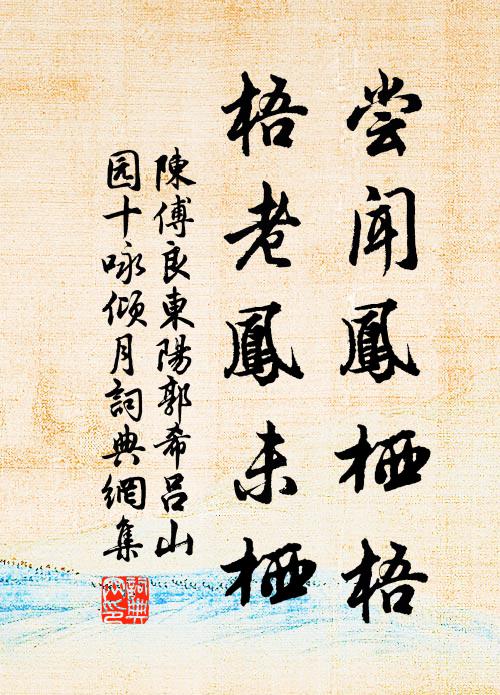 尝闻鳳栖梧
梧老鳳未栖
陳傅良東陽郭希吕山
园十咏傾月詞典網集